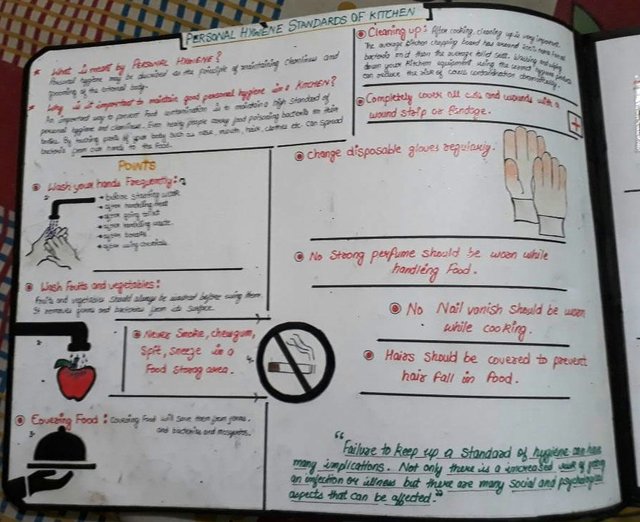 PERSONAL HYGIENE STANDARDS OF KITCHEN
* What is meant by PERSONAL HYGIENE?
Personal hygiene may be described as the principle of maintaining cleanliness and
grooming of the external body.
* Why is it important to maintain good personal hygiene in a KITCHEN?
An important way to prevent food contamination is to maintain a high standard of
personal hygiene and cleanliness. Even healthy people carry food poisoning bacteria on their
bodies. By touching parts of your body such as nose, mouth, hair, clothes etc can spread
bacteria from our hands to the food.
POINTS
Wash your hands Frequently:
→ before starting work
→ after handling meat
→ after going toilet
→ after handling waste
→ after
→ after using chemicals.
Wash Fruits and vegetables:
Fruits and vegetables should always be washed before using them.
It removes germs and bacteria from its surface.
Never Smoke, chewgum,
Spit, sneeze in a
Food storage area.
Covering Food: Covering Food will save them from germs,
and bacterias and mosquitos.
Cleaning up: After cooking, cleaning up is very important.
The average kitchen chopping board has around
bacteria in it than the average toilet seat. Washing and wiping
down your kitchen equipment using the correct hygiene products
can reduce the risk of cross contamination dramatically.
Completely cover all cuts and wounds with a
wound strip or bandage.
Change disposable gloves regularly.
No Strong perfume should be worn while
handling Food.
No Nail vanish should be worn
while cooking.
Hairs should be covered to prevent
hair fall in food.
"Failure to keep up a standard of hygiene can have
many implications. Not only there is a increased risk of getting
an infection or illness but there are many social and psychological
aspects that can be affected."